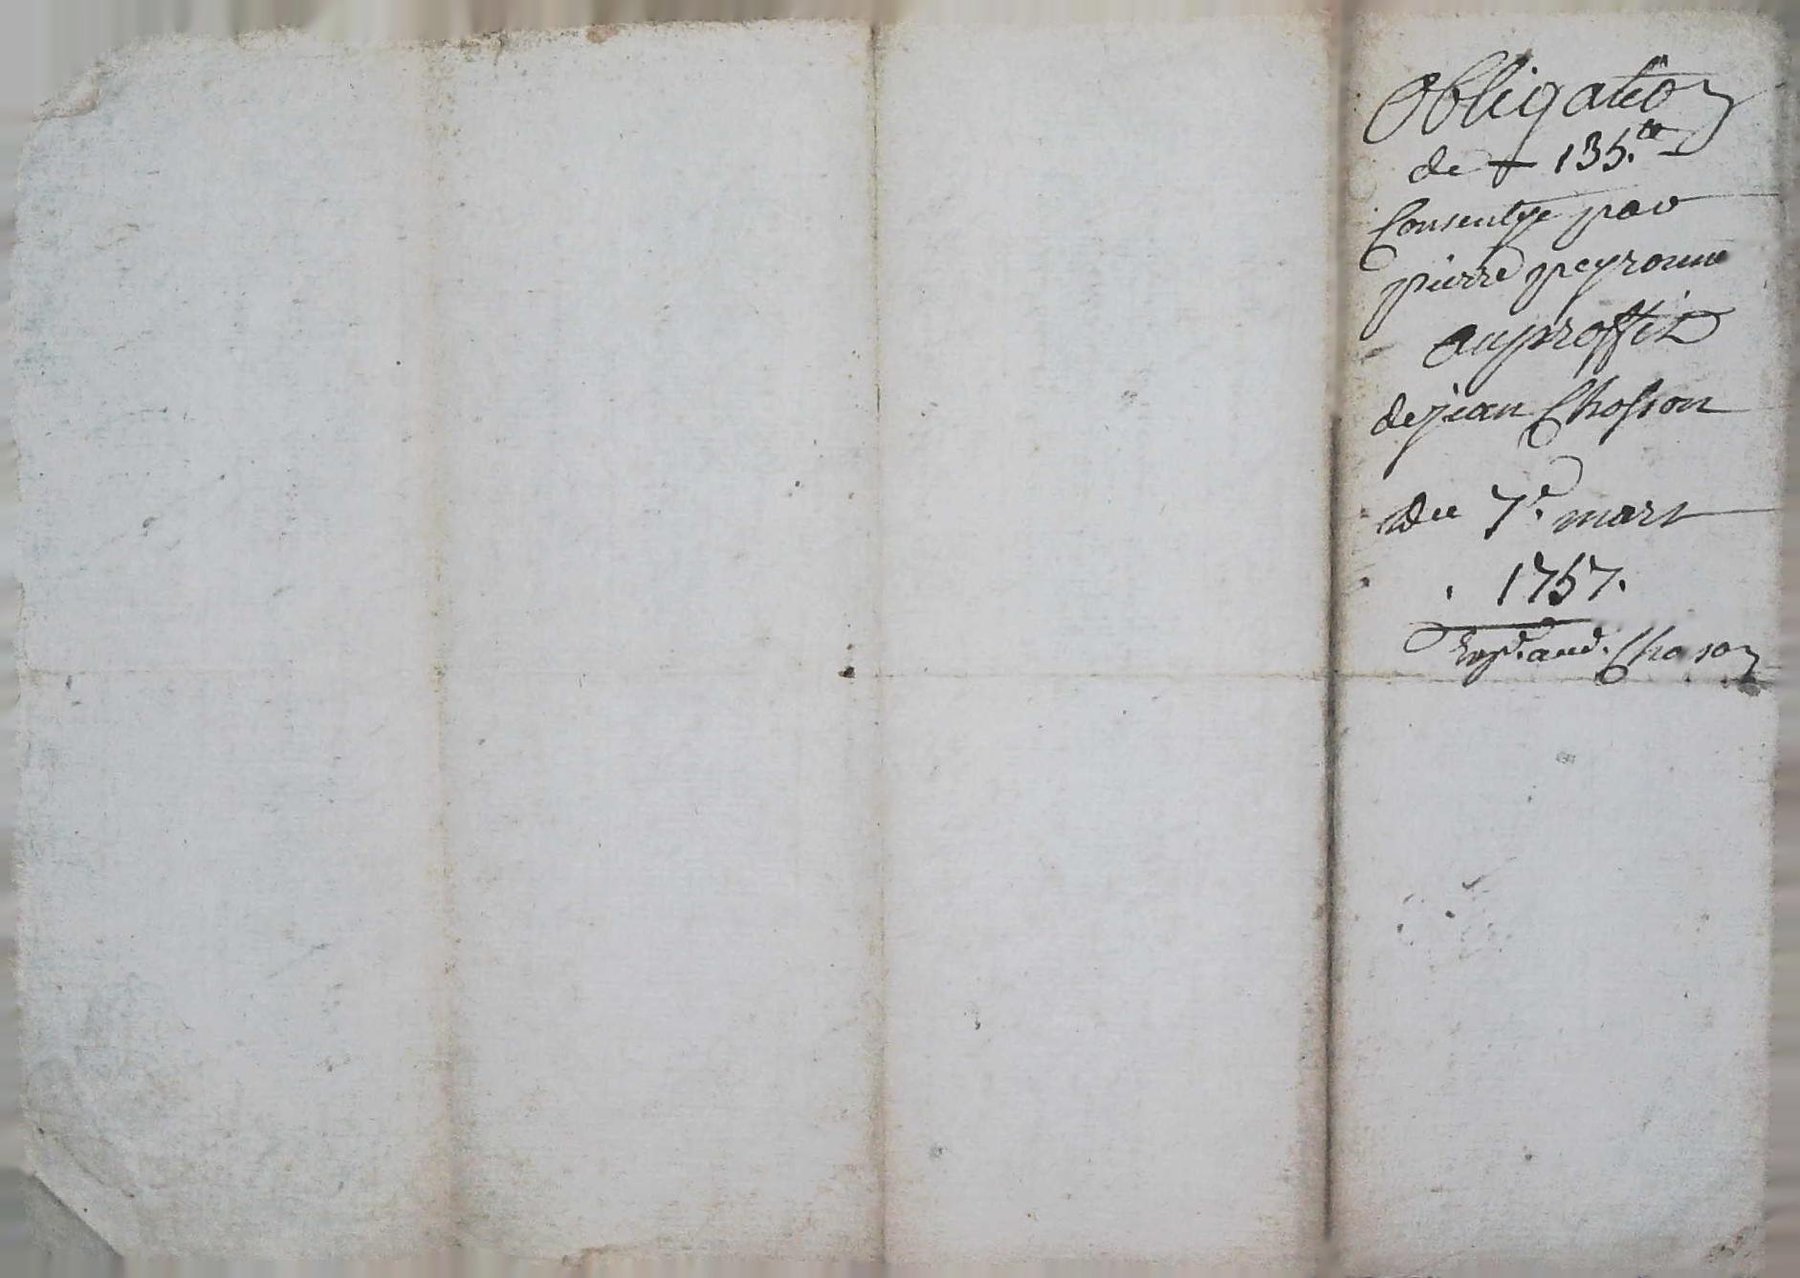 Obligation
de 135.tt
Consentye par
pierre peyronne
au proffit
de jean Chosson
du 7.e mars
1757.
Choson